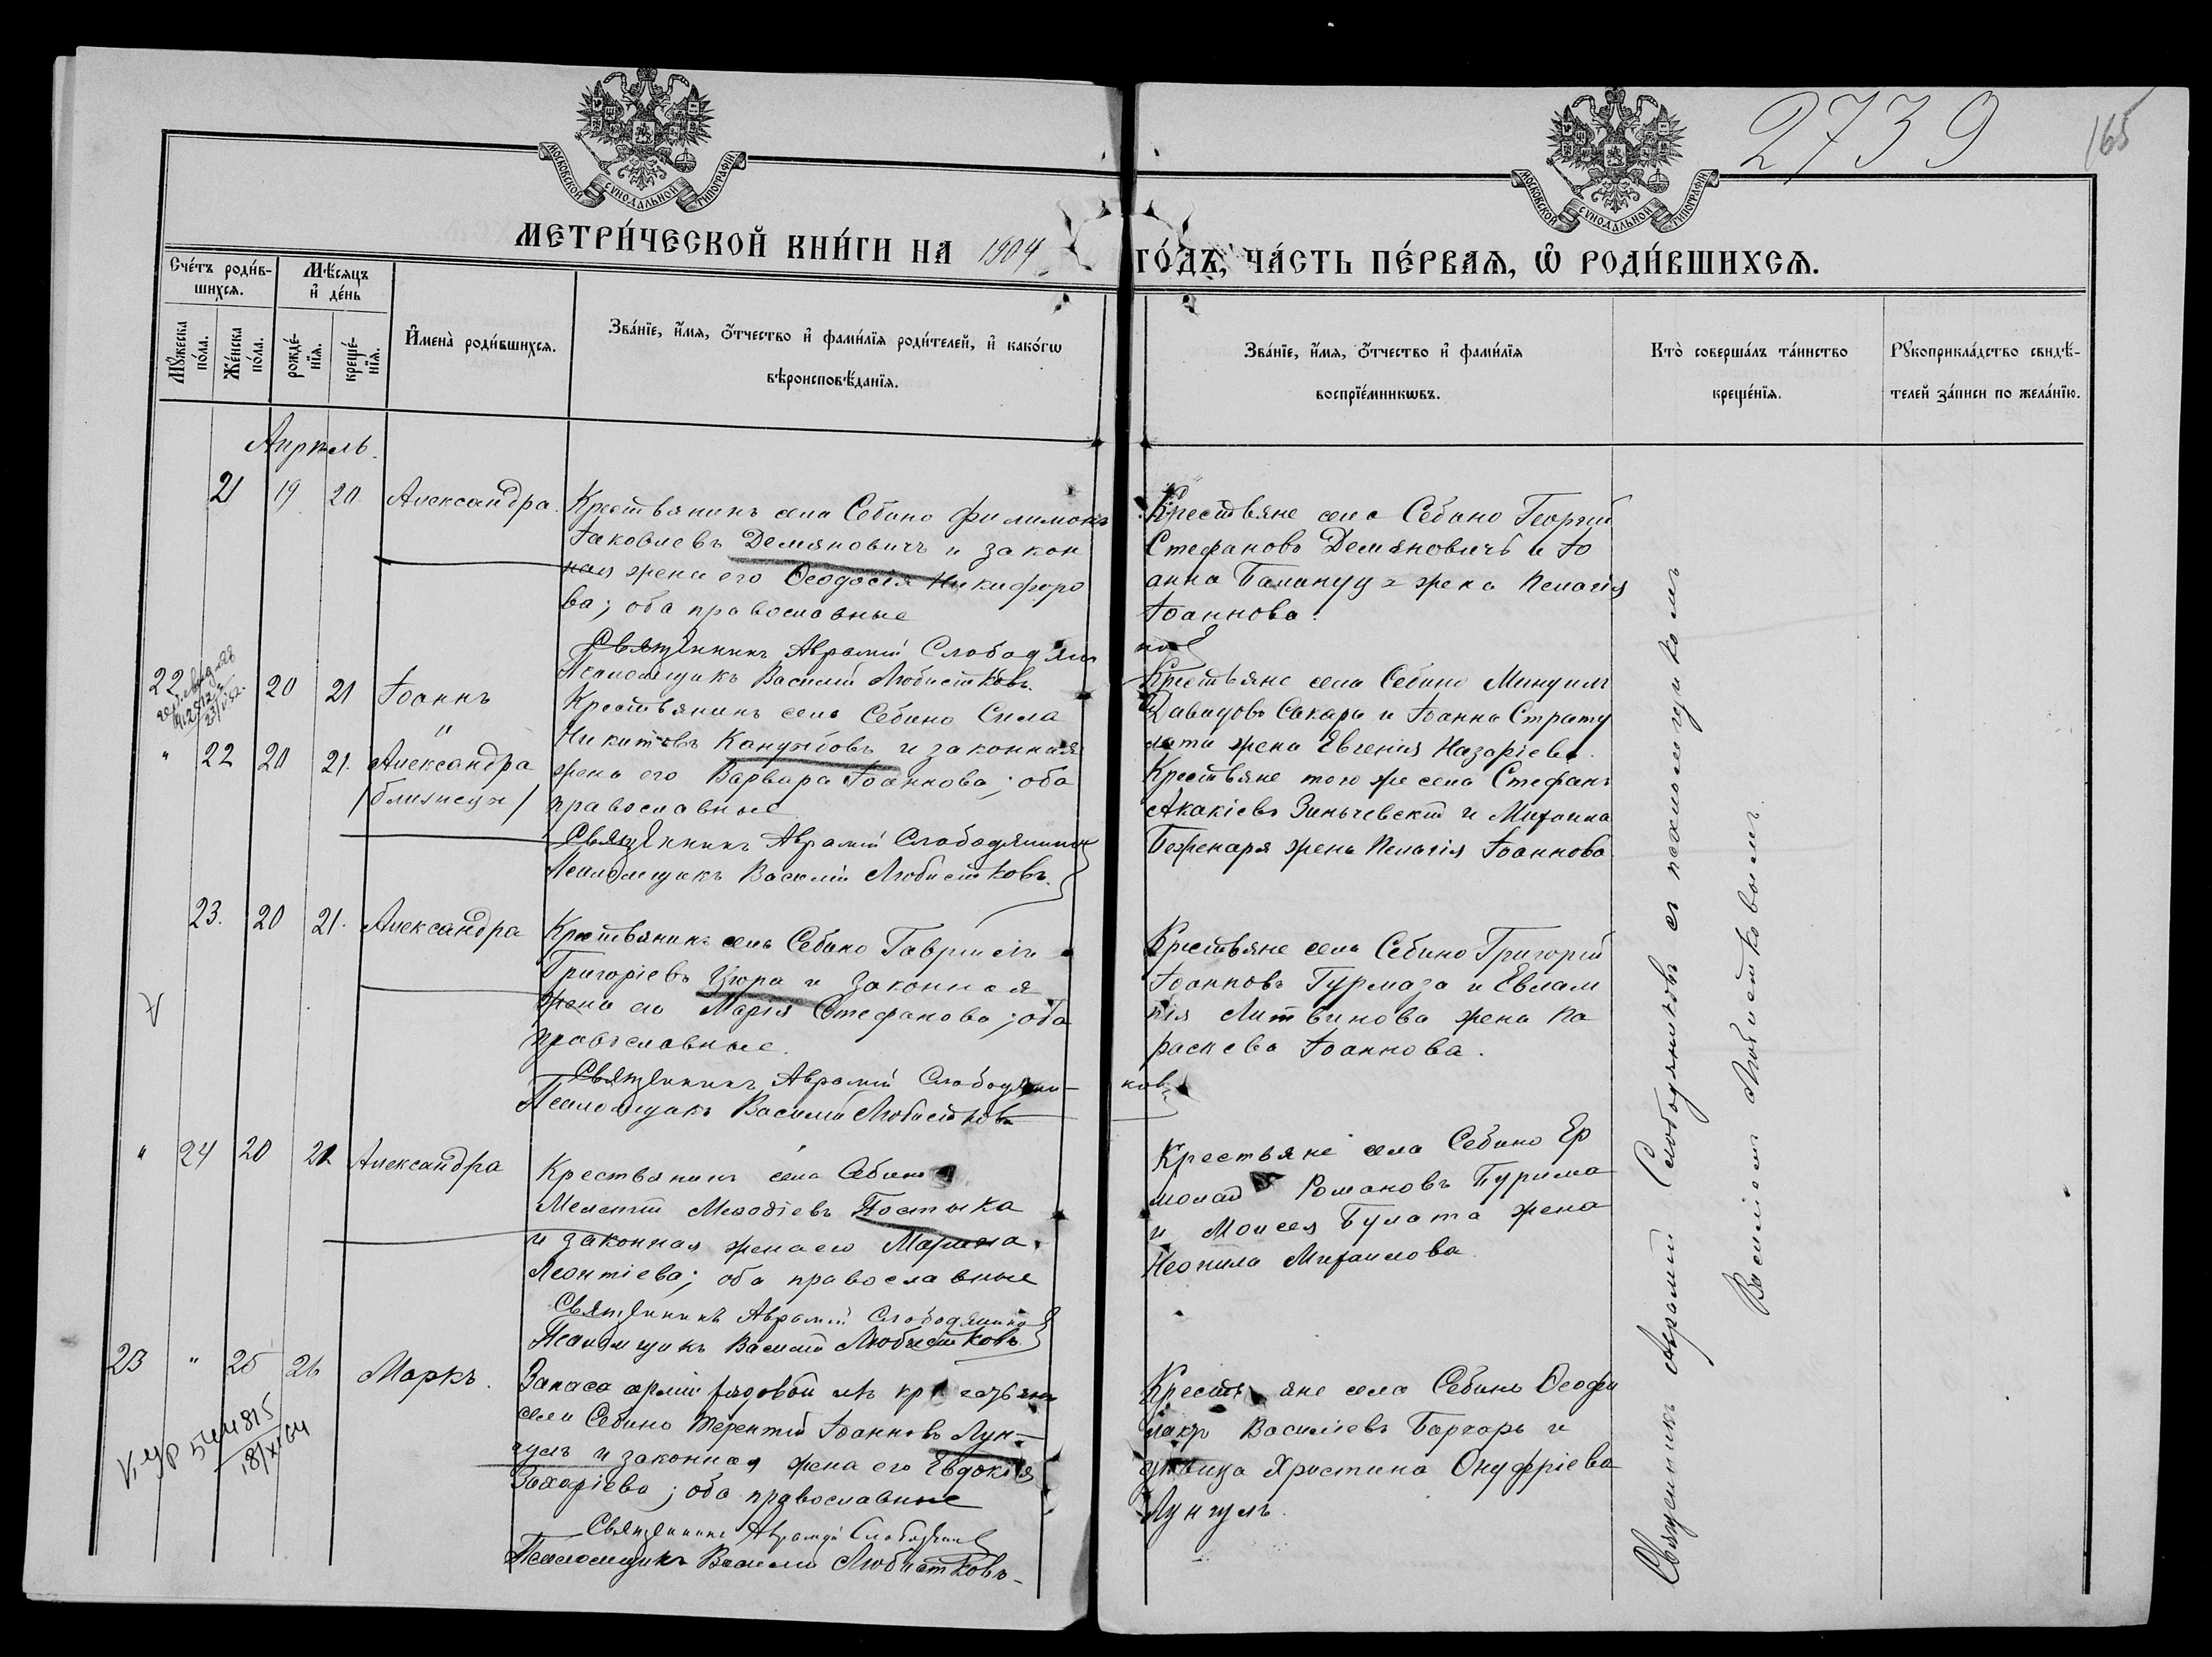 2739
165
МОСКОВСКОЙ СѴНОДАЛЬНОЙ ТИПОГРАФІИ
МОСКОВСКОЙ СѴНОДАЛЬНОЙ ТИПОГРАФІИ
МЕТРИ́ЧЕСКОЙ КНИ́ГИ НА 1904 ГО́ДЪ, ЧА́СТЬ ПЕ́РВАѦ, Ѡ РОДИ́ВШИХСѦ.
Сче́тъ роди́в-
шихсѧ.
Мѣ́сяцъ
и҆ де́нь
Мꙋ́жеска по́ла.
Же́нска по́ла.
рожде́-
нїѧ.
креще́-
нїѧ.
И҆мена̀ роди́вшихсѧ.
Зва́нїе, и҆́мѧ, ѻ҆́тчество и҆ фами́лїѧ роди́телей, и҆ како́гѡ
вѣроисповѣ́данїѧ.
Зва́нїе, и҆́мѧ, ѻ҆́тчество и҆ фами́лїѧ
воспрїе́мникѡвъ.
Кто̀ соверша́лъ та́инство
креще́нїѧ.
Рꙋкоприкла́дство свидѣ́-
телей за́писи по жела́нїю.
Апрѣль.
21 19 20 Александра.
Крестьянинъ села Себино Филимонъ
Іаковлевъ Демяновичъ и закон
ная жена его Ѳеодосія Никифоро
ва; оба православные
Священникъ Аврамій Слободяни
ковъ
Псаломщикъ Василій Любистковъ.
Крестьяне села Себино Георгій
Стефановъ Демяновичъ и Іо
анна жена Пелагія
Іоаннова.
22 20 21 Іоаннъ
"
" 22 20 21. Александра
/близнецы/
Крестьянинъ села Себино Сила
Никитовъ Кандыбовъ и законная
жена его Варвара Іоаннова; оба
православные
Священникъ Аврамій Слободяниковъ
Псаломщикъ Василій Любистковъ.
Крестьяне села Себино
Давидовъ Сакара и Іоанна Страту
лата жена Евгенія Назаріева.
Крестьяне того же села Стефанъ
Акакіевъ Зиньчевскій и Михаила
Беженаря жена Пелагія Іоаннова.
23. 20 21. Александра
Крестьянинъ села Себино Гавріилъ
Григоріевъ Цюра и законная
жена его Марія Стефанова; оба
православные.
Священникъ Аврамій Слободяни-
ковъ
Псаломщикъ Василій Любистковъ
Крестьяне села Себино Григорій
Іоанновъ Гурмаза и Евлам
пія Литвинова жена Па
раскева Іоаннова.
" 24 20 21 Александра
Крестьянинъ села Себино
Мелетій Меѳодіевъ Постыка
и законная жена его Марина
Леонтіева; оба православные
Священникъ Аврамій Слободяниковъ
Псаломщикъ Василій Любистковъ
Крестьяне села Себино Ер
молай Романовъ Бурима
и Моисея Булата жена
Неонила Михаилова.
23 " 25 26 Маркъ.
Запаса арміи рядовой изъ крестьянъ
села Себино Терентій Іоанновъ Лун-
гулъ и законная жена его Евдокія
Захаріева; оба православные
Священникъ Аврамій Слободяниковъ
Псаломщикъ Василій Любистковъ-
Крестьяне села Себино Ѳеофи
лактъ Василіевъ Баргаръ и
дѣвица Христина Онуфріева
Лунгулъ.
544815
18/XI 64
Священникъ Аврамій Слободяниковъ съ псаломщикомъ
Василіемъ Любистковымъ.